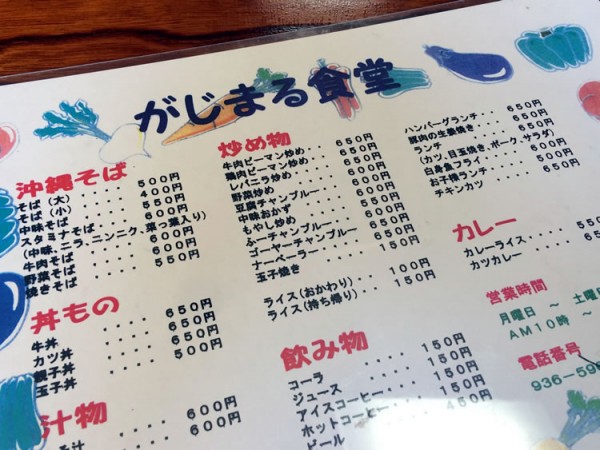 がじまる食堂
沖縄そば
そば（大）‥‥500円
そば（小）‥‥400円
中味そば‥‥550円
スタミナそば‥‥600円
（中味、ニラ、ニンニク、菜っ葉入り）
牛肉そば‥‥600円
野菜そば‥‥600円
焼きそば‥‥550円
丼もの
牛丼‥‥600円
カツ丼‥‥650円
親子丼‥‥650円
玉子丼‥‥500円
汁物
‥‥600円
‥‥600円
炒め物
牛肉ピーマン炒め‥650円
鶏肉ピーマン炒め‥650円
レバニラ炒め‥‥650円
野菜炒め‥‥600円
豆腐チャンプルー‥600円
中味おかず‥‥650円
もやし炒め‥‥550円
ふーチャンプルー‥600円
ゴーヤーチャンプルー‥600円
ナーベーラー‥‥650円
玉子焼き‥‥150円
ライス（おかわり）‥100円
ライス（持ち帰り）‥150円
飲み物
コーラ‥‥150円
ジュース‥‥150円
アイスコーヒー‥‥150円
ホットコーヒー‥‥150円
ビール‥‥450円
ハンバーグランチ‥650円
豚肉の生姜焼き‥650円
ランチ‥‥650円
（カツ、目玉焼き、ポーク、サラダ）
白身魚フライ‥‥650円
お子様ランチ‥‥550円
チキンカツ‥‥650円
カレー
カレーライス‥‥550
カツカレー‥‥650
営業時間
月曜日 ～ 土曜
AM10時 ～
電話番号
936-59